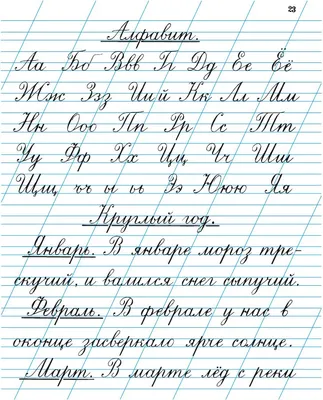 23
Алфавит.
Аа Бб Ввв Гг Дд Ее Ёё
Жж Ззз Иий Кк Лл Мм
Нн Ооо Пп Рр Сс Тт
Уу Фф Хх Цц Чч Шш
Щщ ъъ ы ьь Ээ Юю Яя
Круглый год.
Январь. В январе мороз тре-
скучий, и валился снег сыпучий.
Февраль. В феврале у нас в
оконце засверкало ярче солнце.
Март. В марте лёд с реки